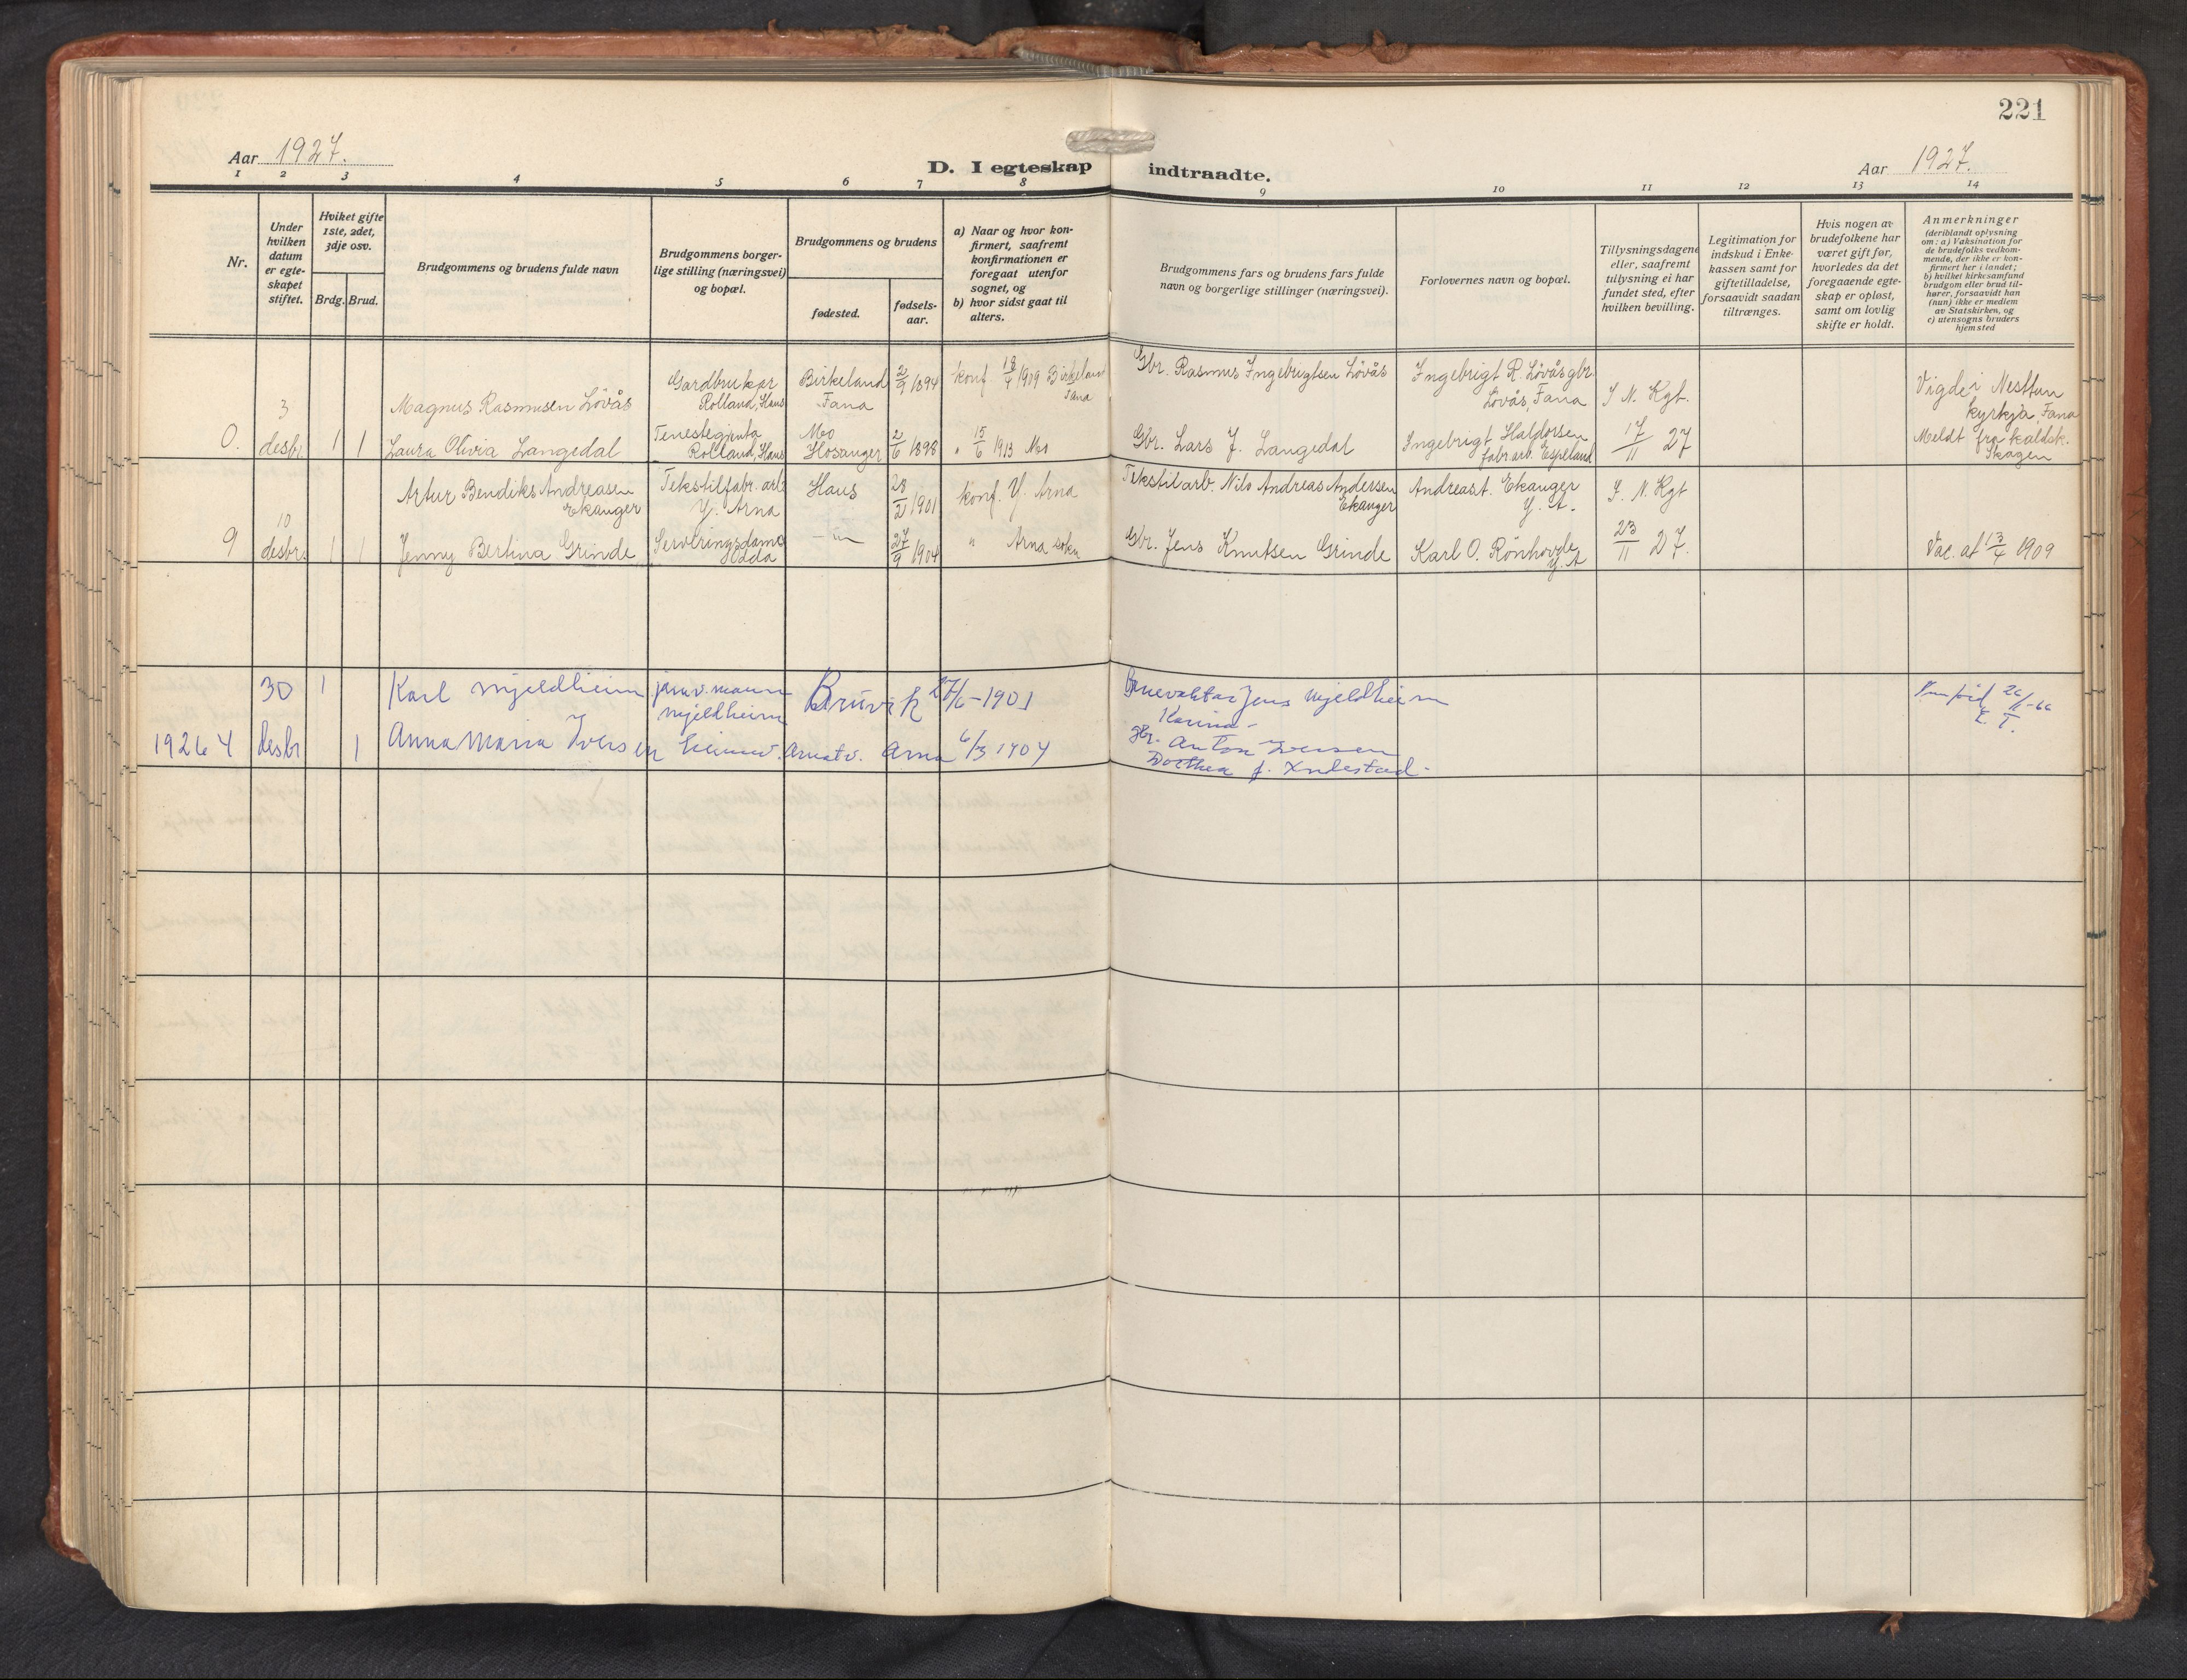 221
Aar 1927.
D. I egteskap indtraadte.
Aar 1927.
1 2 3 4 5 6 7 8 9 10 11 12 13 14
Nr.
Under hvilken datum er egte-skapet stiftet.
Hviket gifte 1ste, 2det, 3dje osv.
Brdg. Brud.
Brudgommens og brudens fulde navn
Brudgommens borger-lige stilling (næringsvei) og bopæl.
Brudgommens og brudens
fødested.
fødsels-aar.
a) Naar og hvor kon-firmert, saafremt konfirmationen er foregaat utenfor sognet, og
b) hvor sidst gaat til alters.
Brudgommens fars og brudens fars fulde navn og borgerlige stillinger (næringsvei).
Forlovernes navn og bopæl.
Tillysningsdagene eller, saafremt tillysning ei har fundet sted, efter hvilken bevilling.
Legitimation for indskud i Enke-kassen samt for giftetilladelse, forsaavidt saadan tiltrænges.
Hvis nogen av brudefolkene har været gift før, hvorledes da det foregaaende egte-skap er opløst, samt om lovlig skifte er holdt.
Anmerkninger
(deriblandt oplysning om: a) Vaksination for de brudefolks vedkom-mende, der ikke er kon-firmert her i landet;
b) hvilket kirkesamfund brudgom eller brud til-hører, forsaavidt han (hun) ikke er medlem av Statskirken, og
c) utensogns bruders hjemsted
0. 3 desbr. 1 1
Magnus Rasmusen Lövås
Gardbrukar Rolland, Haus
Birkeland Fana
2/9 1894
konf. 18/4 1909 Birkeland Fana
Gbr. Rasmus Ingebrigtsen Lövås
Ingebrigt R. Lövås gbr. Lövås, Fana
S. N. Kgt.
Vigde i Nesttun kyrkja, Fana
Laura Olivia Langedal
Tenestegjenta Rolland, Haus
Mo Hosanger
2/6 1898
" 15/6 1913 Mo
Gbr. Lars J. Langedal
Ingebrigt Haldorsen fabr.arb. Espeland
17/11 27
Meldt fra kaldsk. Skagen
9 10 desbr. 1 1
Artur Bendiks Andreasen Ekanger
Tekstilfabr. arb. Y. Arna
Haus
28/2 1901
konf. Y. Arna
Tekstilarb. Nils Andreas Andersen Ekanger
Andreas A. Ekanger Y. A.
S. N. Kgt
Jenny Bertina Grinde
Serveringsdame Odda
— " —
27/9 1904
" Arna sokn
Gbr. Jens Knutsen Grinde
Karl O. Rönhovde Y. A
23/11 27.
Vac. at 13/4 1909
1926 4 30 desbr 1 1
Karl Mjeldheim
jarnv. mann Mjeldheim
Bruvik
27/6 - 1901
Banevaktar Jens Mjeldheim
Karina -
26/11-66
E. T.
Anna Maria Iversen
heimev. Arnatv.
Arna
6/3 1904
gbr. Anton Iversen
Dorthea f. Indestad -